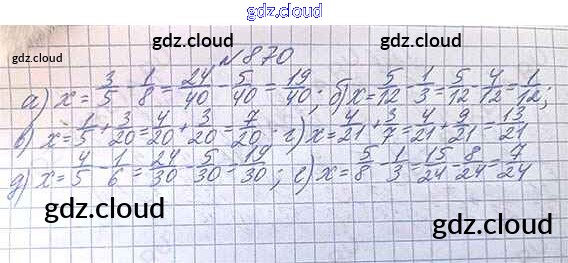 gdz.cloud
gdz.cloud
gdz.cloud
№870
а) x = 3/5 - 1/8 = 24/40 - 5/40 = 19/40; б) x = 5/12 - 1/3 = 5/12 - 4/12 = 1/12;
в) x = 1/5 + 3/20 = 4/20 + 3/20 = 7/20 г) x = 4/21 + 3/7 = 4/21 + 9/21 = 13/21
д) x = 4/5 - 1/6 = 24/30 - 5/30 = 19/30; е) x = 5/8 - 1/3 = 15/24 - 8/24 = 7/24
gdz.cloud
gdz.cloud